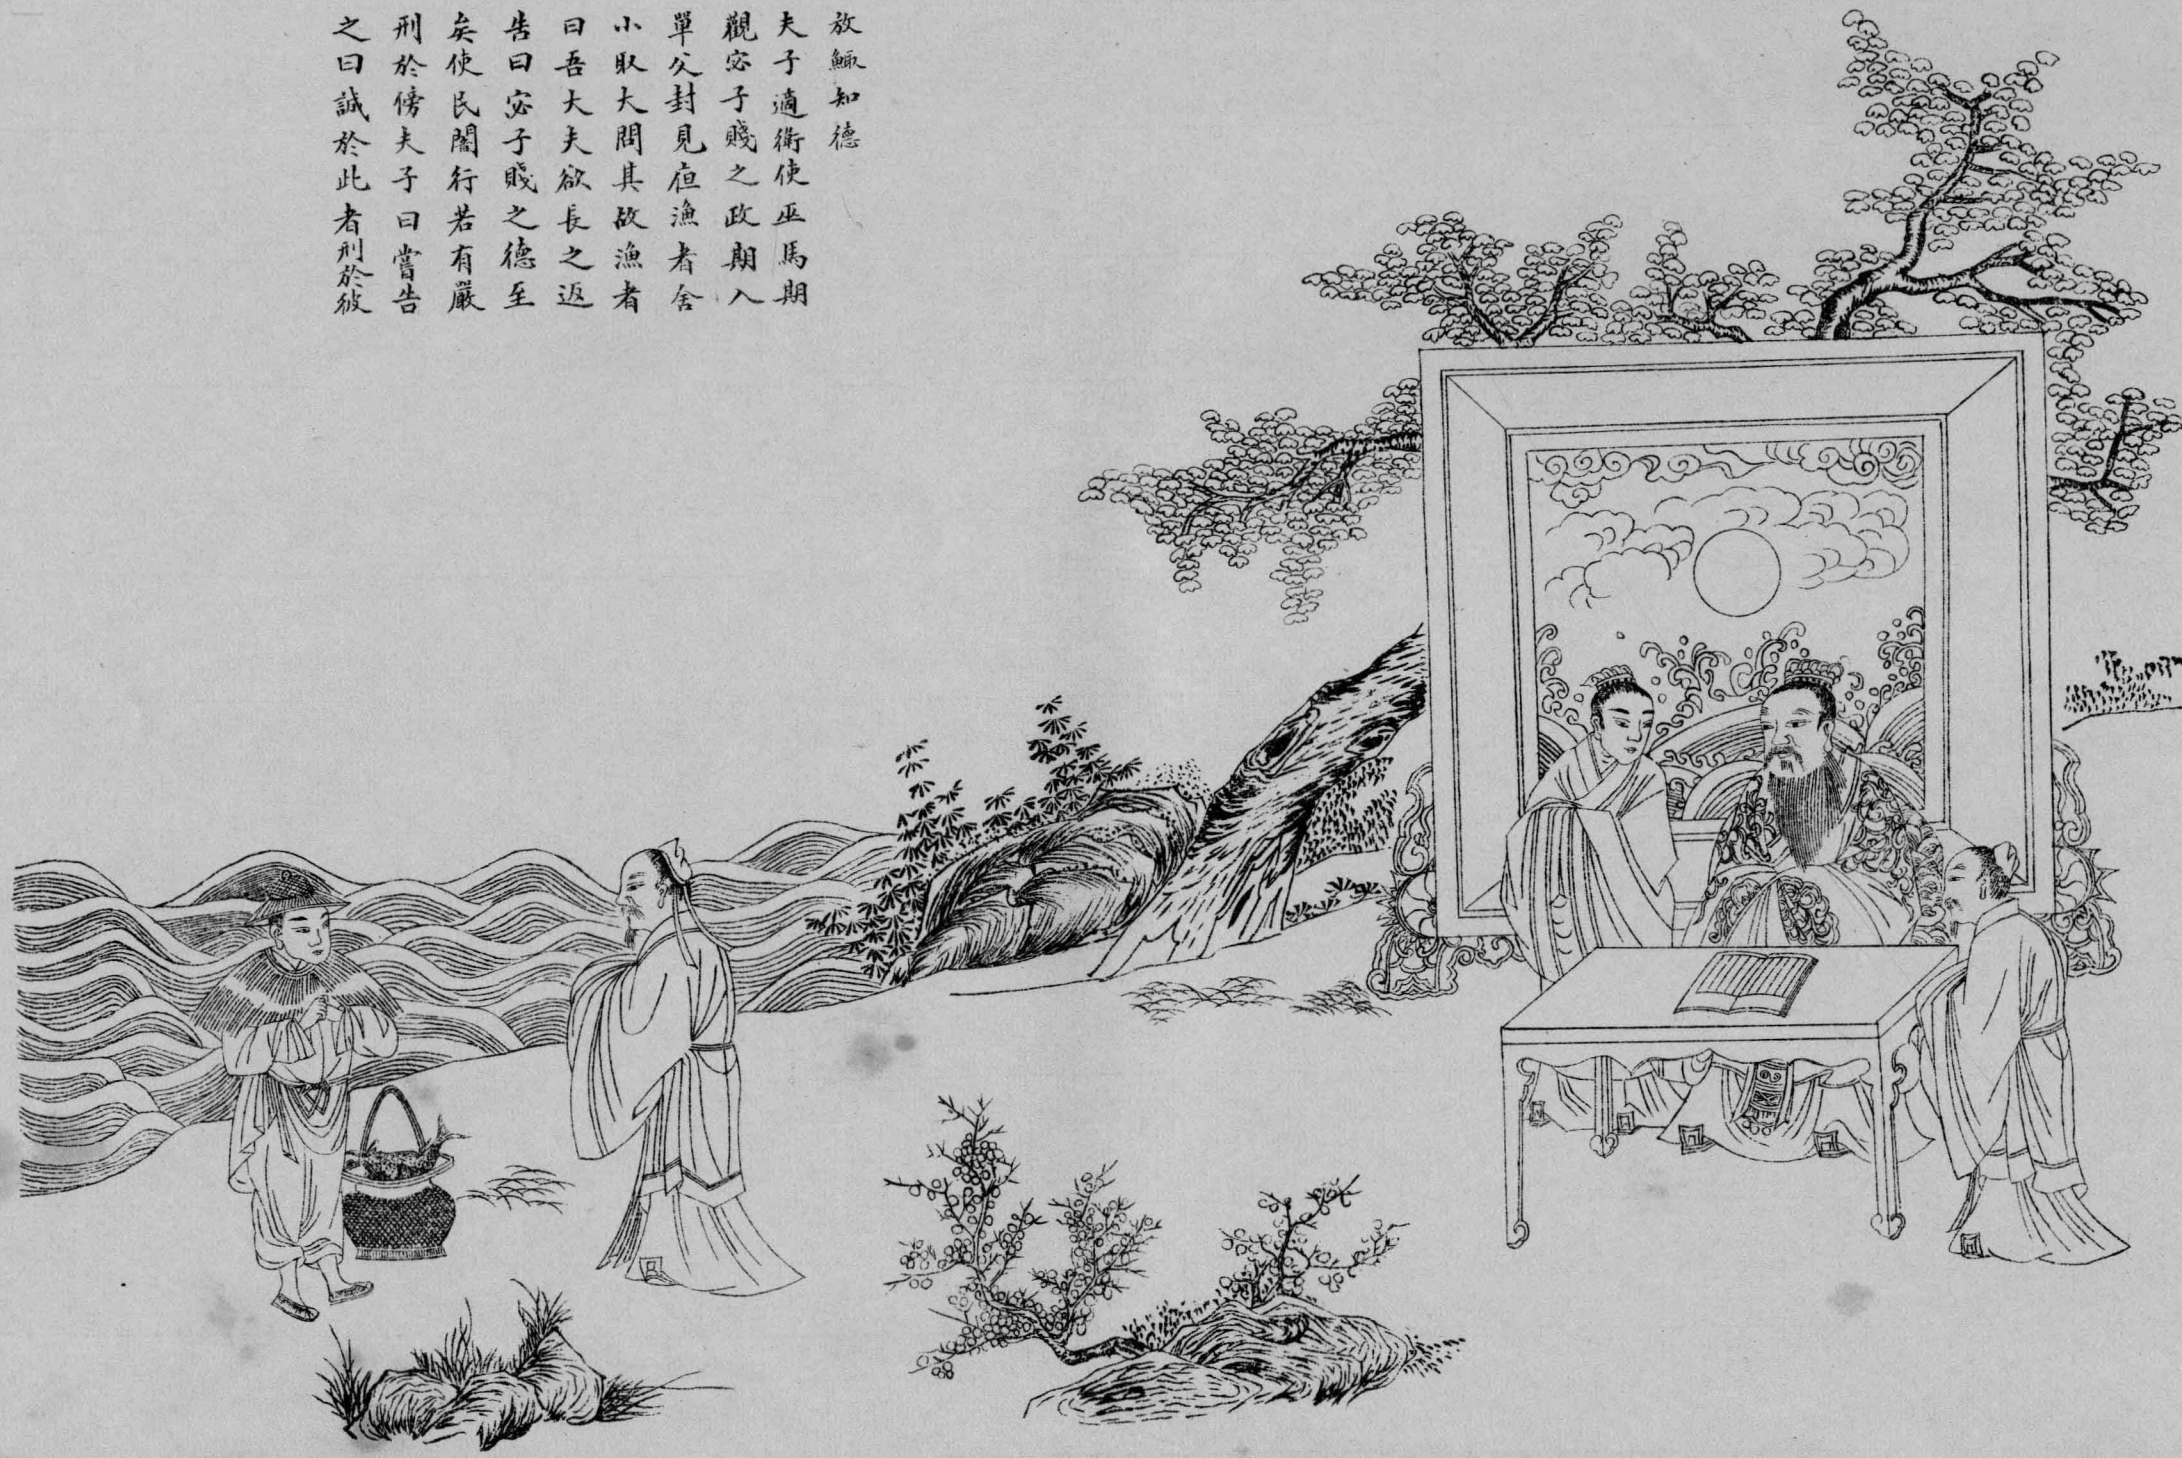 放鱞知德
夫子適衛使巫馬期
觀宓子賤之政期入
單父封見夜漁者舍
小取大問其故漁者
曰吾大夫欲長之返
告曰宓子賤之德至
矣使民闇行若有嚴
刑於傍夫子曰嘗告
之曰誠於此者刑於彼